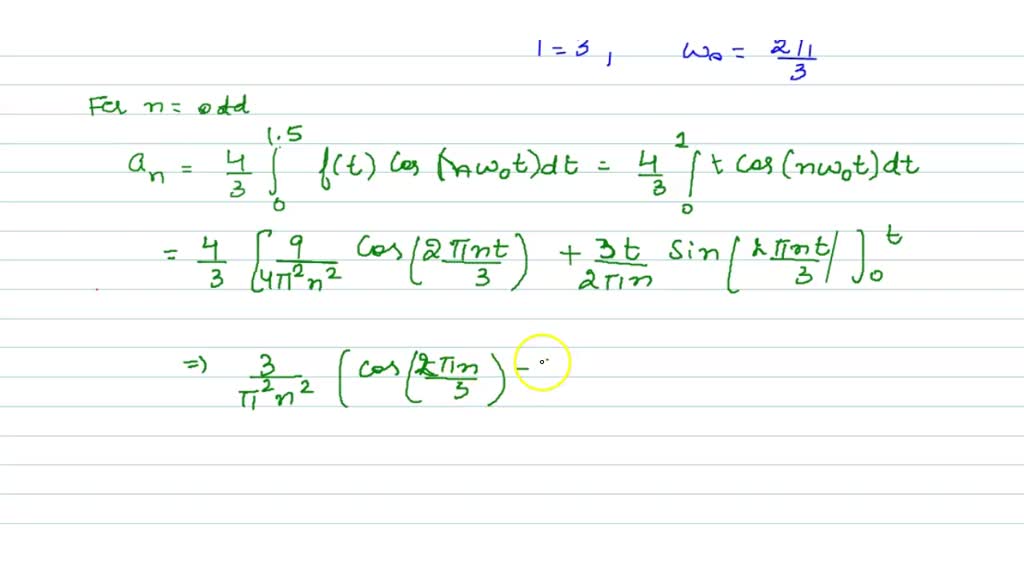 T = 3, ω₀ = 2π/3
For n = odd
aₙ = 4/3 ∫₀^1.5 f(t) cos(nω₀t)dt = 4/3 ∫₀^1 t cos(nω₀t)dt
= 4/3 [9/4π²n² cos(2πnt/3) + 3t/2πn sin(2πnt/3)]₀^t
=> 3/π²n² (cos(2πn/3) -